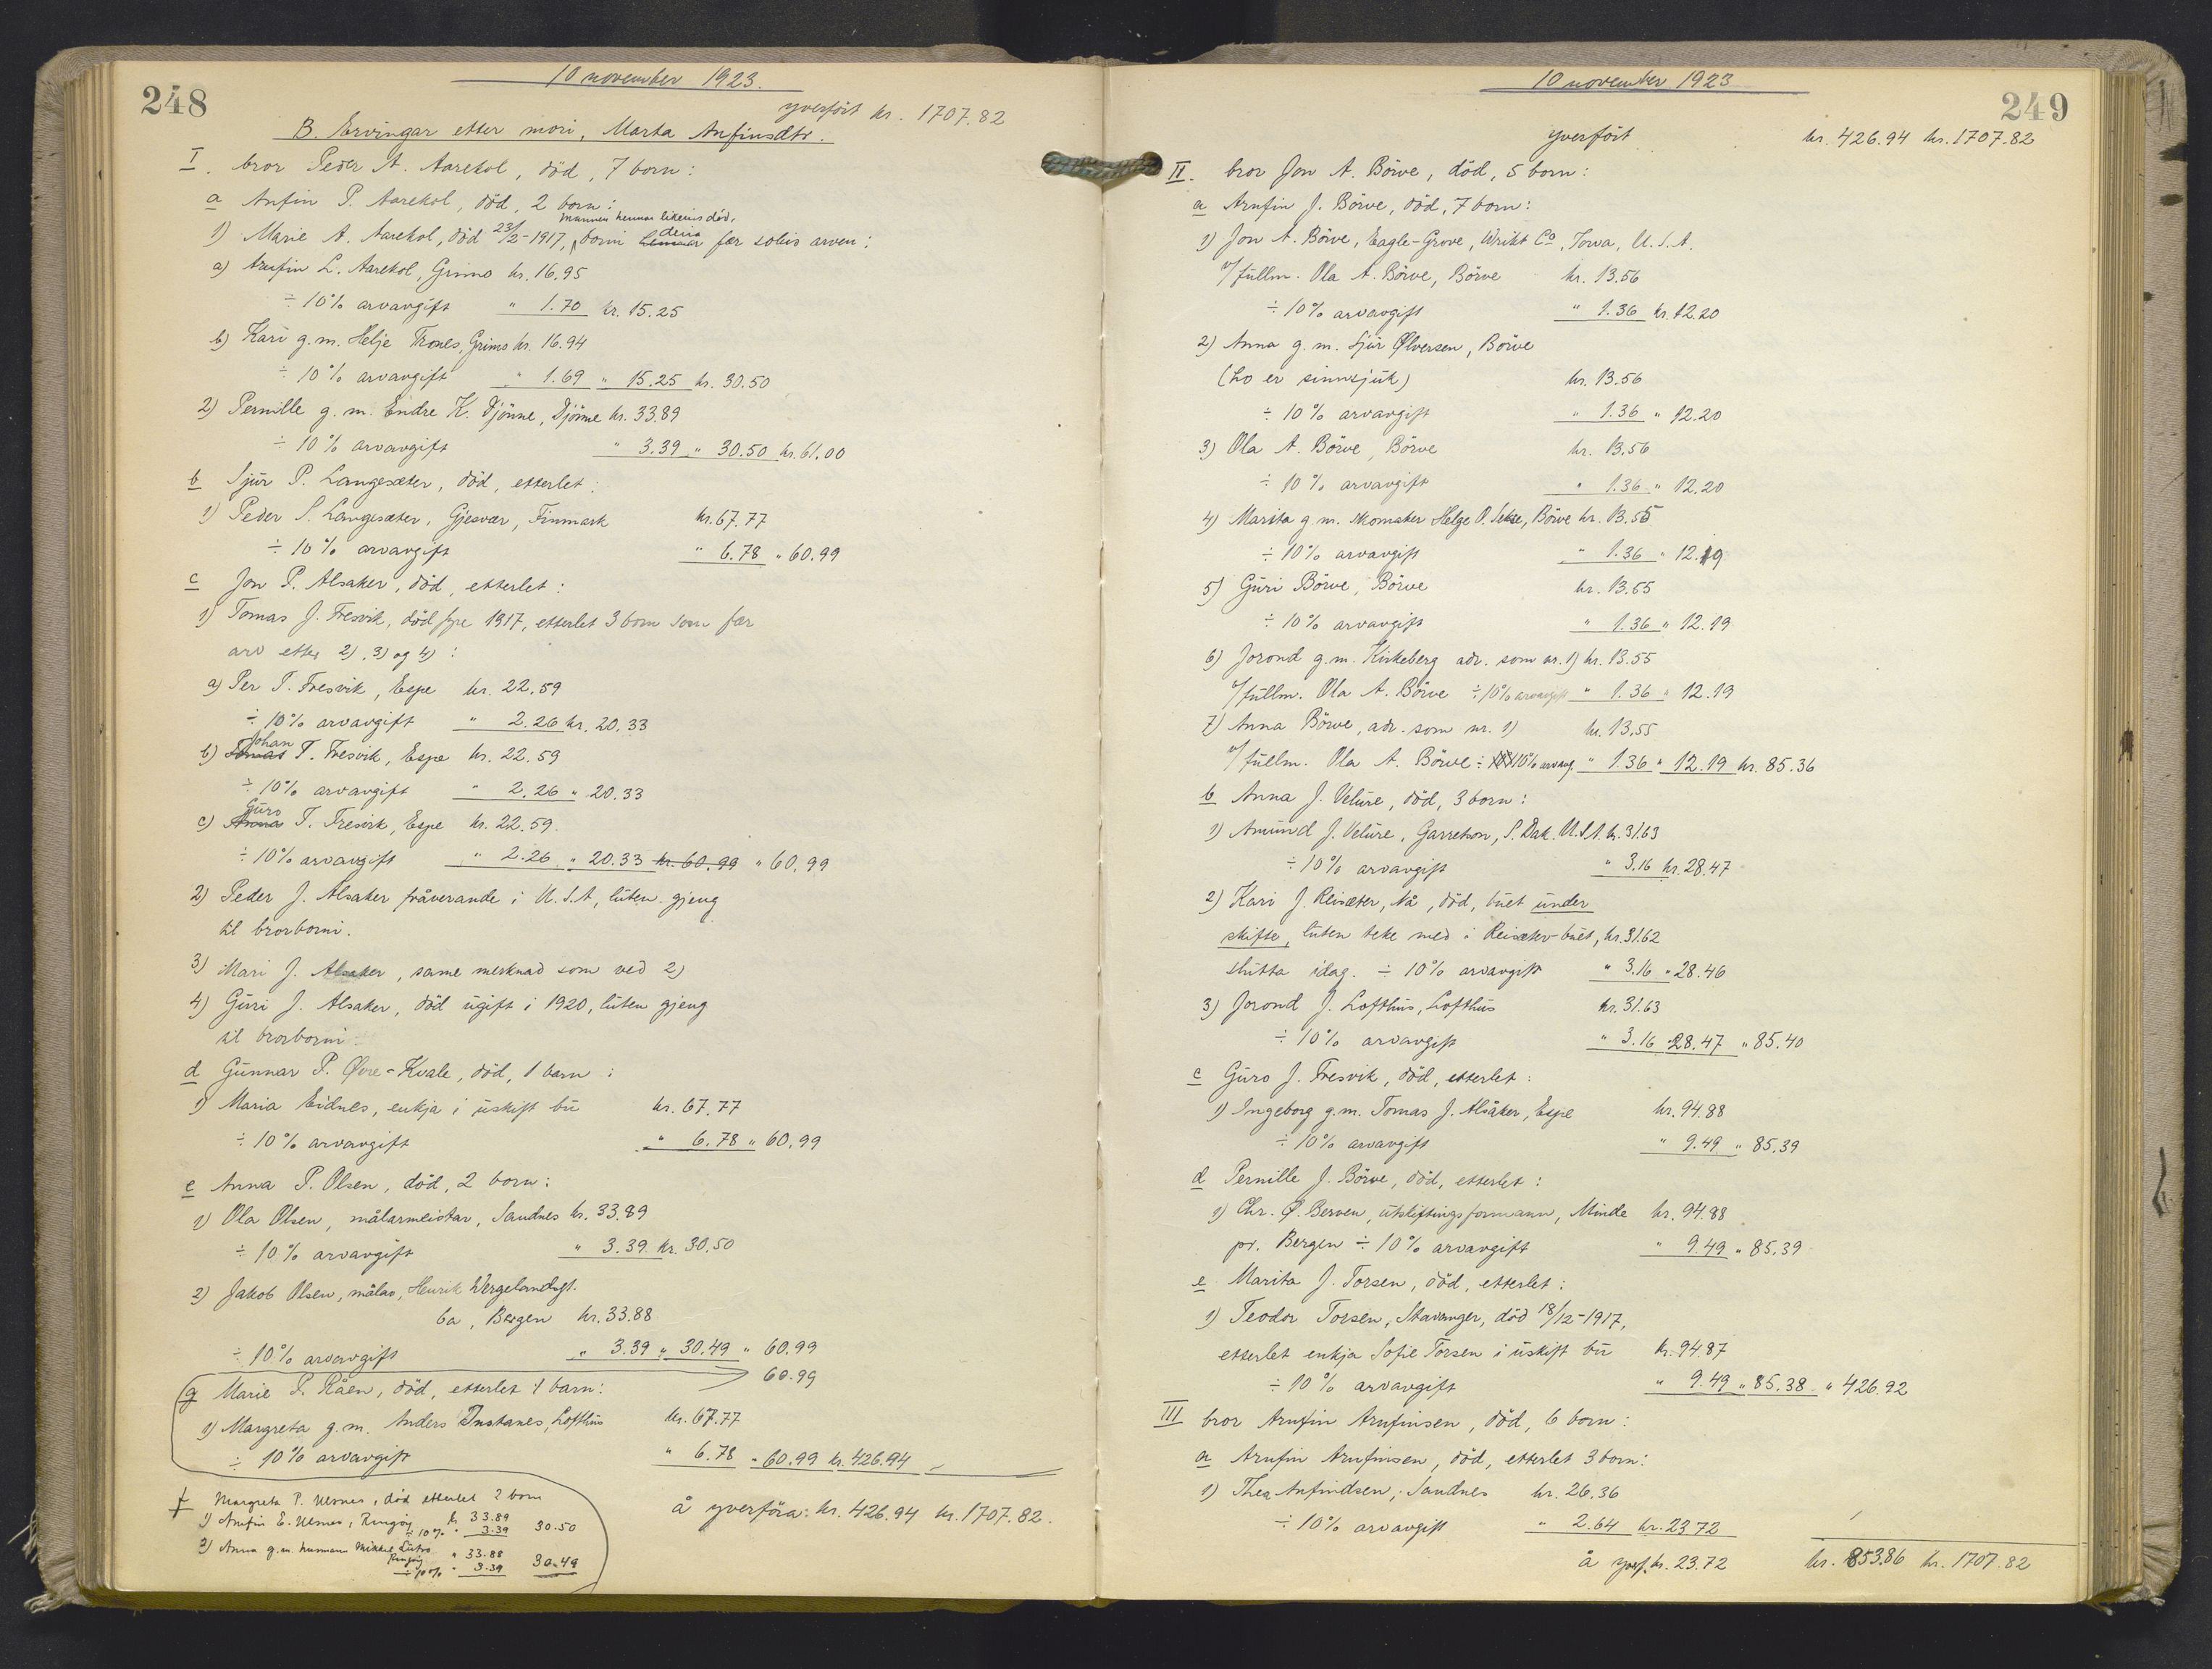 248
10 november 1923.
yverfört kr. 1707.82
B. Ervingar etter mori, Marta Anfinsdtr.
I. bror Peder A. Aarekol, död, 7 born:
a Anfin P. Aarekol, död, 2 born:
mannen hennar likeins död,
1) Marie A. Aarekol, död 23/2-1917, borni deira fær soleis arven:
a) Arnfin L. Aarekol, Grimo kr. 16.95
÷ 10% arvavgift " 1.70 kr. 15.25
b) Kari g.m. Helje Trones, Grimo kr. 16.94
÷ 10% arvavgift " 1.69 " 15.25 kr. 30.50
2) Pernille g.m. Endre K. Djönne, Djönne kr. 33.89
÷ 10% arvavgift " 3.39 " 30.50 kr. 61.00
b Sjur P. Langesæter, död, etterlet:
1) Peder S. Langesæter, Gjesvær, Finmark kr. 67.77
÷ 10% arvavgift " 6.78 " 60.99
c Jon P. Alsaker, död, etterlet:
1) Tomas J. Fresvik, död fyre 1917, etterlet 3 born som fær
arv etter 2), 3) og 4):
a) Per T. Fresvik, Espe kr. 22.59
÷ 10% arvavgift " 2.26 kr. 20.33
Johan
b) Tomas T. Fresvik, Espe kr. 22.59
÷ 10% arvavgift " 2.26 " 20.33
Guro
c) Anna T. Fresvik, Espe kr. 22.59
÷ 10% arvavgift " 2.26 " 20.33 kr. 60.99 " 60.99
2) Peder J. Alsaker fråverande i U.S.A, luten gjeng
til brorborni.
3) Mari J. Alsaker, same merknad som ved 2)
4) Guri J. Alsaker, död ugift i 1920, luten gjeng
til brorborni.
d Gunnar P. Øvre-Kvale, död, 1 barn:
1) Maria Eidnes, enkja i uskift bu kr. 67.77
÷ 10% arvavgift " 6.78 " 60.99
e Anna P. Olsen, död, 2 born:
1) Ola Olsen, målarmeistar, Sandnes kr. 33.89
÷ 10% arvavgift " 3.39 kr. 30.50
2) Jakob Olsen, målar, Henrik Wergelandsgt.
6a, Bergen kr. 33.88
÷ 10% arvavgift " 3.39 " 30.49 " 60.99
60.99
g Marie P. Råen, död, etterlet 1 barn:
1) Margreta g.m. Anders Instanes, Lofthus kr. 67.77
÷ 10% arvavgift " 6.78 " 60.99 kr. 426.94
f Margreta P. Ulsnes, död etterlet 2 born
1) Arnfin E. Ulsnes, Ringöy kr 33.89
÷ 10% " 3.39 30.50
2) Anna g.m. husmann Mikkel Lutro
Ringöy " 33.88
÷ 10% " 3.39 30.49
å yverföra: kr. 426.94 kr. 1707.82.
249
10 november 1923
yverfört kr. 426.94 kr. 1707.82
II. bror Jon A. Börve, död, 5 born:
a Arnfin J. Börve, död, 7 born:
1) Jon A. Börve, Eagle-Grove, Wrikt Co, Iowa, U.S.A.
v/fullm. Ola A. Börve, Börve kr. 13.56
÷ 10% arvavgift " 1.36 kr. 12.20
2) Anna g.m. Sjur Ølversen, Börve
(ho er sinnsjuk) kr. 13.56
÷ 10% arvavgift " 1.36 " 12.20
3) Ola A. Börve, Börve kr. 13.56
÷ 10% arvavgift " 1.36 " 12.20
4) Marita g.m. skomaker Helge O. Sekse, Börve kr. 13.55
÷ 10% arvavgift " 1.36 " 12.19
5) Guri Börve, Börve kr. 13.55
÷ 10% arvavgift " 1.36 " 12.19
6) Jorond g.m. Kirkeberg adr. som nr. 1) kr. 13.55
v/fullm. Ola A. Börve ÷ 10% arvavgift " 1.36 " 12.19
7) Anna Börve, adr. som nr. 1) kr. 13.55
v/fullm. Ola A. Börve ÷ 10% arvavg. " 1.36 " 12.19 kr. 85.36
b Anna J. Velure, död, 3 born:
1) Amund J. Velure, Garretson, S. Dak. U.S.A. kr. 31.63
÷ 10% arvavgift " 3.16 kr. 28.47
2) Kari J. Reisæter, Nå, död, buet under
skifte, luten teke med i Reisæter-buet, kr. 31.62
slutta idag. ÷ 10% arvavgift " 3.16 " 28.46
3) Jorond J. Lofthus, Lofthus kr. 31.63
÷ 10% arvavgift " 3.16 " 28.47 " 85.40
c Guro J. Fresvik, död, etterlet:
1) Ingeborg g.m. Tomas J. Alsåker, Espe kr. 94.88
÷ 10% arvavgift " 9.49 " 85.39
d Pernille J. Börve, död, etterlet:
1) Chr. O. Berven, utskiftingsformann, Minde kr. 94.88
pr. Bergen ÷ 10% arvavgift " 9.49 " 85.39
e Marita J. Torsen, död, etterlet:
1) Teodor Torsen, Stavanger, död 18/12-1917,
etterlet enkja Sofie Torsen i uskift bu kr. 94.87
÷ 10% arvavgift " 9.49 " 85.38 " 426.92
III bror Arnfin Arnfinsen, död, 6 born:
a Arnfin Arnfinsen, död, etterlet 3 born:
1) Thea Anfindsen, Sandnes kr. 26.36
÷ 10% arvavgift " 2.64 kr. 23.72
å yverf. kr. 23.72 kr. 853.86 kr. 1707.82